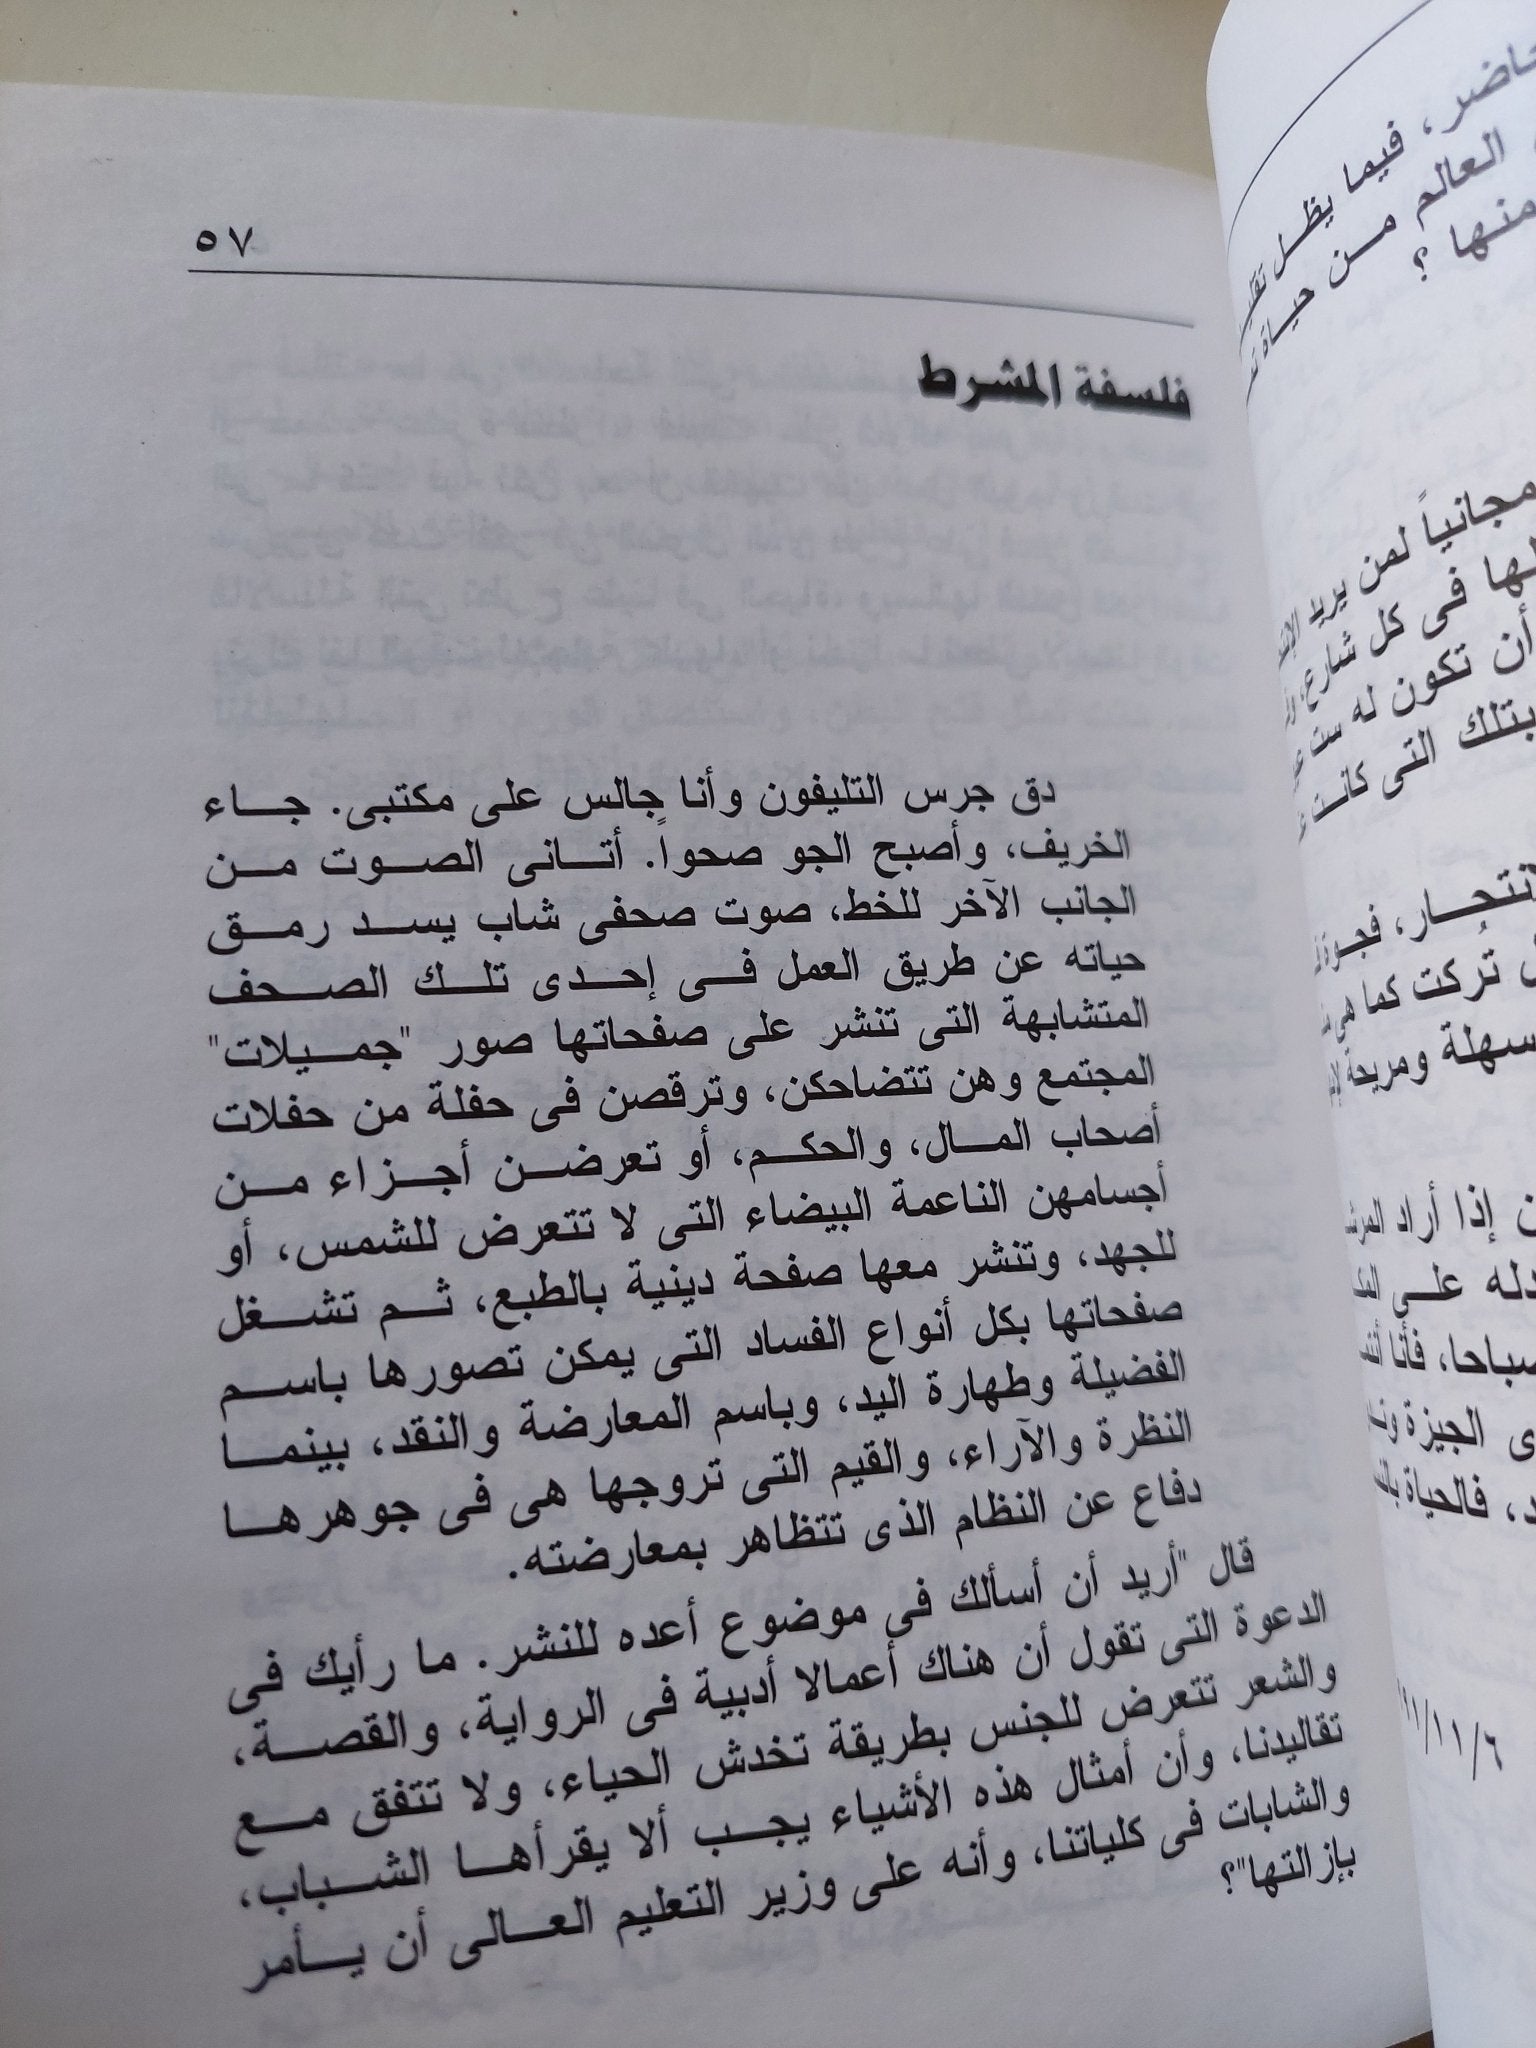 ٥٧
فلسفة المشرط
دق جرس التليفون وأنا جالس على مكتبى. جاء
الخريف، وأصبح الجو صحواً. أتانى الصوت من
الجانب الآخر للخط، صوت صحفى شاب يسد رمق
حياته عن طريق العمل فى إحدى تلك الصحف
المتشابهة التى تنشر على صفحاتها صور "جميلات"
المجتمع وهن تتضاحكن، وترقصن فى حفلة من حفلات
أصحاب المال، والحكم، أو تعرضن أجزاء من
أجسامهن الناعمة البيضاء التى لا تتعرض للشمس، أو
للجهد، وتنشر معها صفحة دينية بالطبع، ثم تشغل
صفحاتها بكل أنواع الفساد التى يمكن تصورها باسم
الفضيلة وطهارة اليد، وباسم المعارضة والنقد، بينما
النظرة والآراء، والقيم التى تروجها هى فى جوهرها
دفاع عن النظام الذى تتظاهر بمعارضته.
قال "أريد أن أسألك فى موضوع أعده للنشر. ما رأيك فى
الدعوة التى تقول أن هناك أعمالا أدبية فى الرواية، والقصة،
والشعر تتعرض للجنس بطريقة تخدش الحياء، ولا تتفق مع
تقاليدنا، وأن أمثال هذه الأشياء يجب ألا يقرأها الشباب،
والشابات فى كلياتنا، وأنه على وزير التعليم العالى أن يأمر
بإزالتها"؟
فيما يظل
العالم من حياة
منها ؟
مجانياً لمن يريد
فى كل شارع،
أن تكون له ست
بتلك التى كانت
فجوة
تُركت كما هى
سهلة ومريحة
إذا أراد
على
صباحا، فأنا
الجيزة
فالحياة